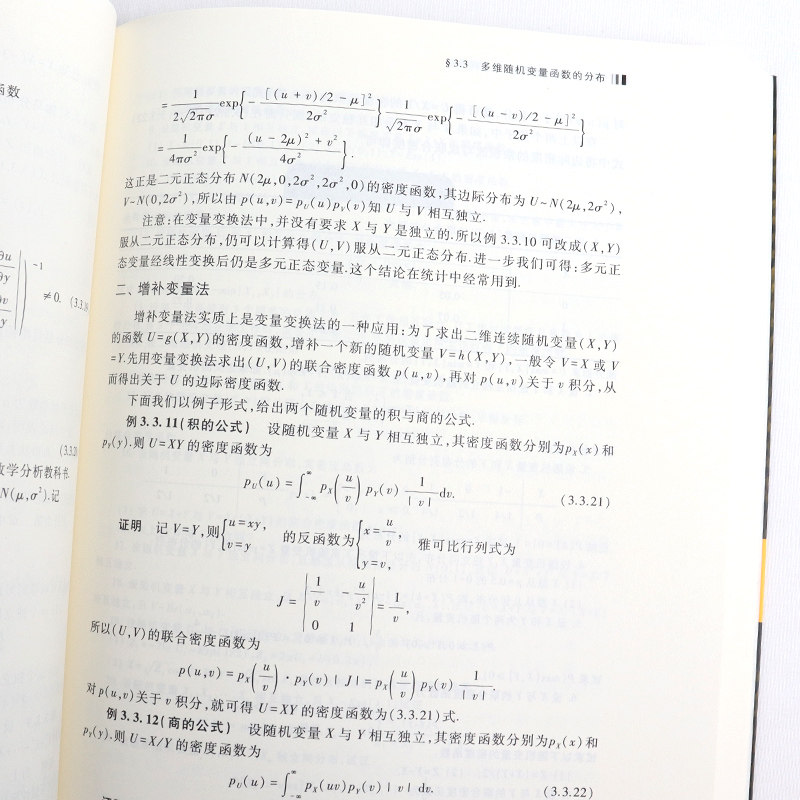 函数
∂u
∂y
∂v
y
-1
≠0. (3.3.19
(3.3.20
数学分析教科书.
N(μ,σ²).记
§3.3 多维随机变量函数的分布
= 1/(2√(2π)σ) exp{ - [(u+v)/2-μ]²/(2σ²) } 1/(√(2π)σ) exp{ - [(u-v)/2-μ]²/(2σ²) }
= 1/(4πσ²) exp{ - ((u-2μ)²+v²)/(4σ²) }.
这正是二元正态分布 N(2μ,0,2σ²,2σ²,0)的密度函数,其边际分布为 U~N(2μ,2σ²),
V~N(0,2σ²),所以由 p(u,v)=p_U(u)p_V(v)知 U 与 V 相互独立.
注意:在变量变换法中,并没有要求 X 与 Y 是独立的.所以例 3.3.10 可改成(X,Y)
服从二元正态分布,仍可以计算得(U,V)服从二元正态分布.进一步我们可得:多元正
态变量经线性变换后仍是多元正态变量.这个结论在统计中经常用到.
二、增补变量法
增补变量法实质上是变量变换法的一种应用:为了求出二维连续随机变量(X,Y)
的函数 U=g(X,Y)的密度函数,增补一个新的随机变量 V=h(X,Y),一般令 V=X 或 V
=Y.先用变量变换法求出(U,V)的联合密度函数 p(u,v),再对 p(u,v)关于 v 积分,从
而得出关于 U 的边际密度函数.
下面我们以例子形式,给出两个随机变量的积与商的公式.
例 3.3.11(积的公式) 设随机变量 X 与 Y 相互独立,其密度函数分别为p_X(x)和
p_Y(y).则 U=XY 的密度函数为
p_U(u)=∫_{-∞}^{∞} p_X(u/v) p_Y(v) 1/|v| dv. (3.3.21)
证明 记 V=Y,则{u=xy, v=y 的反函数为{x=u/v, y=v, 雅可比行列式为
J = |1/v -u/v²; 0 1| = 1/v,
所以(U,V)的联合密度函数为
p(u,v)=p_X(u/v)·p_Y(v)|J|=p_X(u/v)p_Y(v) 1/|v|.
对 p(u,v)关于 v 积分,就可得 U=XY 的密度函数为(3.3.21)式.
例 3.3.12(商的公式) 设随机变量 X 与 Y 相互独立,其密度函数分别为p_X(x)和
p_Y(y).则 U=X/Y 的密度函数为
p_U(u)=∫_{-∞}^{∞} p_X(uv)p_Y(v)|v| dv. (3.3.22)